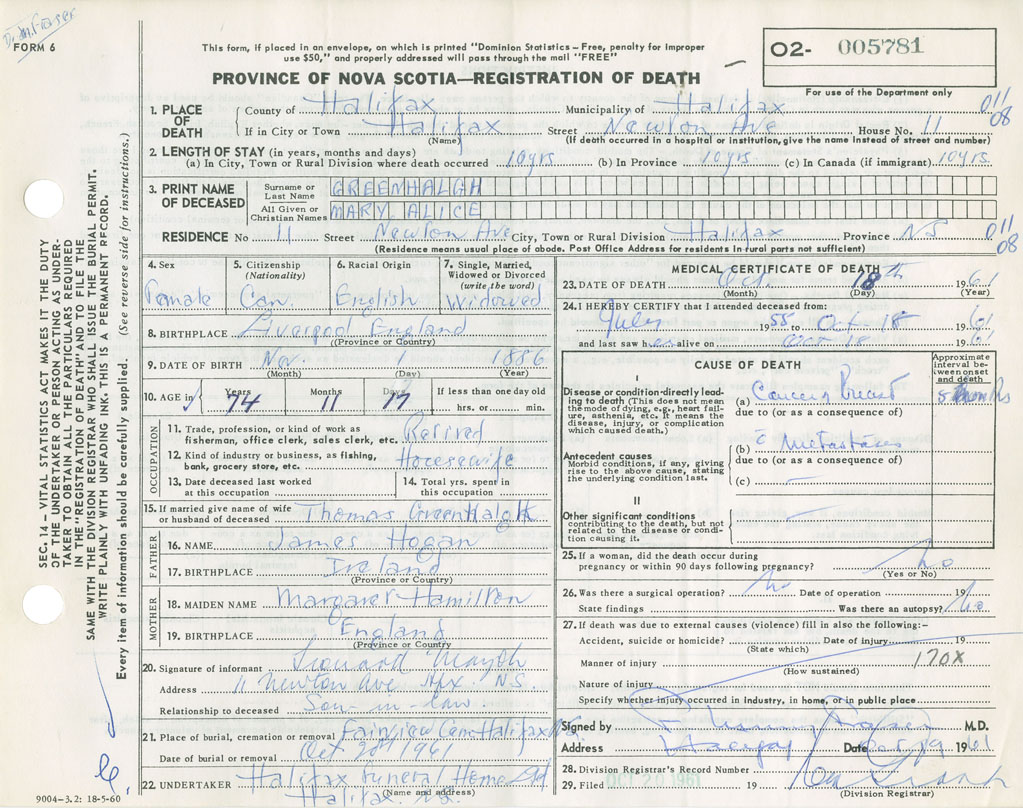 FORM 6
This form, if placed in an envelope, on which is printed "Dominion Statistics – Free, penalty for improper
use $50," and properly addressed will pass through the mail "FREE"
PROVINCE OF NOVA SCOTIA—REGISTRATION OF DEATH
02- 005781
For use of the Department only
1. PLACE OF DEATH
County of Halifax Municipality of Halifax 011
If in City or Town Halifax Street Newton Ave House No. 11 08
(Name) (If death occurred in a hospital or institution, give the name instead of street and number)
2. LENGTH OF STAY (in years, months and days)
(a) In City, Town or Rural Division where death occurred 10yrs (b) In Province 10yrs (c) In Canada (if immigrant) 10yrs.
3. PRINT NAME OF DECEASED
Surname or Last Name GREENHALGH
All Given or Christian Names MARY ALICE
RESIDENCE No 11 Street Newton Ave City, Town or Rural Division Halifax Province NS 011
(Residence means usual place of abode. Post Office Address for residents in rural parts not sufficient) 08
4. Sex
Female
5. Citizenship
(Nationality)
Can.
6. Racial Origin
English
7. Single, Married,
Widowed or Divorced
(write the word)
Widowed
8. BIRTHPLACE Liverpool England
(Province or Country)
9. DATE OF BIRTH Nov. 1 1886
(Month) (Day) (Year)
10. AGE in Years Months Days If less than one day old
74 11 17 hrs. or min.
OCCUPATION
11. Trade, profession, or kind of work as
fisherman, office clerk, sales clerk, etc. Retired
12. Kind of industry or business, as fishing,
bank, grocery store, etc. Housewife
13. Date deceased last worked
at this occupation
14. Total yrs. spent in
this occupation
15. If married give name of wife
or husband of deceased Thomas GreenHalgh
FATHER
16. NAME James Hogan
17. BIRTHPLACE Ireland
(Province or Country)
MOTHER
18. MAIDEN NAME Margaret Hamilton
19. BIRTHPLACE England
(Province or Country)
20. Signature of informant Leonard
Address 11 Newton Ave Hfx. NS.
Relationship to deceased Son-in-law.
21. Place of burial, cremation or removal Fairview Cem Halifax NS.
Date of burial or removal Oct 20th 1961
22. UNDERTAKER Halifax Funeral Home Ltd
(Name and address)
Halifax. N.S.
9004-3.2: 18-5-60
MEDICAL CERTIFICATE OF DEATH
23. DATE OF DEATH Oct. 18th 1961
(Month) (Day) (Year)
24. I HEREBY CERTIFY that I attended deceased from:
July 1955 to Oct-18 1961
and last saw her alive on Oct 18 1961
CAUSE OF DEATH
Approximate
interval be-
tween onset
and death
I
Disease or condition directly lead-
ing to death (This does not mean
the mode of dying, e.g., heart fail-
ure, asthenia, etc. It means the
disease, injury, or complication
which caused death.)
(a) Cancer Breast
due to (or as a consequence of)
Antecedent causes
Morbid conditions, if any, giving
rise to the above cause, stating
the underlying condition last.
(b) c̄ Metastases
due to (or as a consequence of)
(c) –
II
Other significant conditions
contributing to the death, but not
related to the disease or condi-
tion causing it.
25. If a woman, did the death occur during
pregnancy or within 90 days following pregnancy? No
(Yes or No)
26. Was there a surgical operation? No Date of operation 19
State findings Was there an autopsy? No
27. If death was due to external causes (violence) fill in also the following:-
Accident, suicide or homicide? Date of injury 19
(State which)
Manner of injury 170X
(How sustained)
Nature of injury
Specify whether injury occurred in industry, in home, or in public place
Signed by M.D.
Address Date Oct 19 1961
28. Division Registrar's Record Number
29. Filed OCT 20 1961 19
(Division Registrar)
SEC. 14 – VITAL STATISTICS ACT MAKES IT THE DUTY
OF THE UNDERTAKER OR PERSON ACTING AS UNDER-
TAKER TO OBTAIN ALL THE PARTICULARS REQUIRED
IN THE "REGISTRATION OF DEATH" AND TO FILE THE
SAME WITH THE DIVISION REGISTRAR WHO SHALL ISSUE THE BURIAL PERMIT.
WRITE PLAINLY WITH UNFADING INK. THIS IS A PERMANENT RECORD.
Every item of information should be carefully supplied. (See reverse side for instructions.)